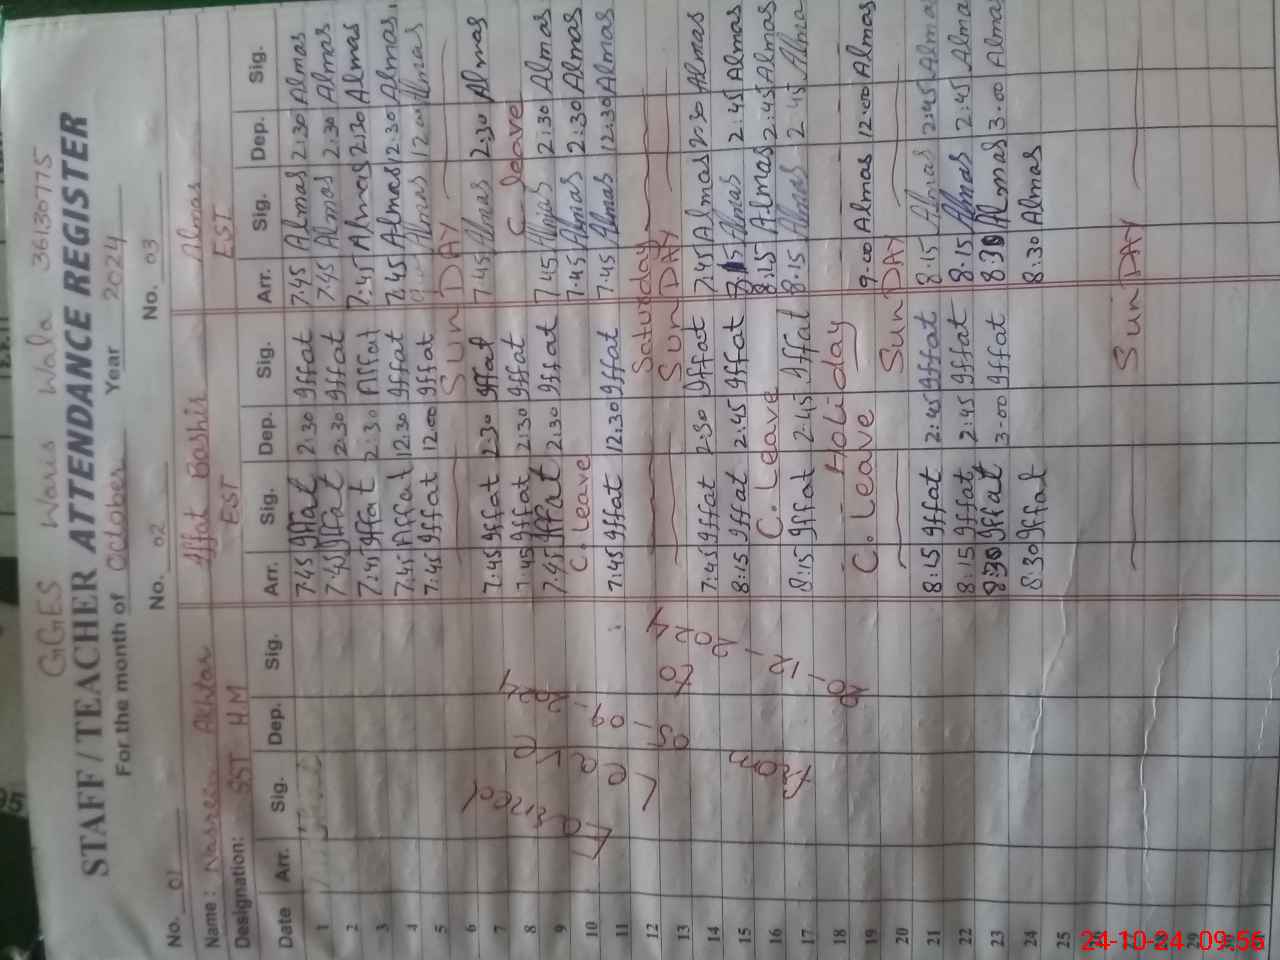 GGES Waris Wala 36130775
STAFF / TEACHER ATTENDANCE REGISTER
For the month of October Year 2024
No. 01 No. 02 No. 03
Name : Nasreen Akhtar Iffat Bashir Almas
Designation: SST HM EST EST
Date Arr. Sig. Dep. Sig. Arr. Sig. Dep. Sig. Arr. Sig. Dep. Sig.
1 7.45 Iffat 2:30 Iffat 7.45 Almas 2:30 Almas
2 7.45 Iffat 2:30 Iffat 7.45 Almas 2:30 Almas
3 7:45 Iffat 2:30 Iffat 7.45 Almas 2:30 Almas
4 7:45 Iffat 12:30 Iffat 7.45 Almas 12:30 Almas
5 7:45 Iffat 12:00 Iffat Almas 12:00 Almas
6 Sun DAY
7 7:45 Iffat 2:30 Iffat 7.45 Almas 2:30 Almas
8 7:45 Iffat 2:30 Iffat C. leave
9 7:45 Iffat 2:30 Iffat 7.45 Almas 2:30 Almas
10 C. leave 7.45 Almas 2:30 Almas
11 7:45 Iffat 12:30 Iffat 7.45 Almas 12:30 Almas
12 Saturday
13 Sun DAY
14 7:45 Iffat 2:30 Iffat 7.45 Almas 2:30 Almas
15 8:15 Iffat 2:45 Iffat Almas 2:45 Almas
16 C. Leave 8:15 Almas 2:45 Almas
17 8:15 Iffat 2.45 Iffat 8:15 Almas 2:45 Almas
18 Holiday
19 C. Leave 9.00 Almas 12:00 Almas
20 Sun DAY
21 8:15 Iffat 2:45 Iffat 8:15 Almas 2:45 Almas
22 8:15 Iffat 2:45 Iffat 8:15 Almas 2:45 Almas
23 8:30 Iffat 3.00 Iffat 8:30 Almas 3.00 Almas
24 8:30 Iffat 8:30 Almas
25
26
27 Sun DAY
28
29
30
Earned Leave
from
24-10-24 09:56